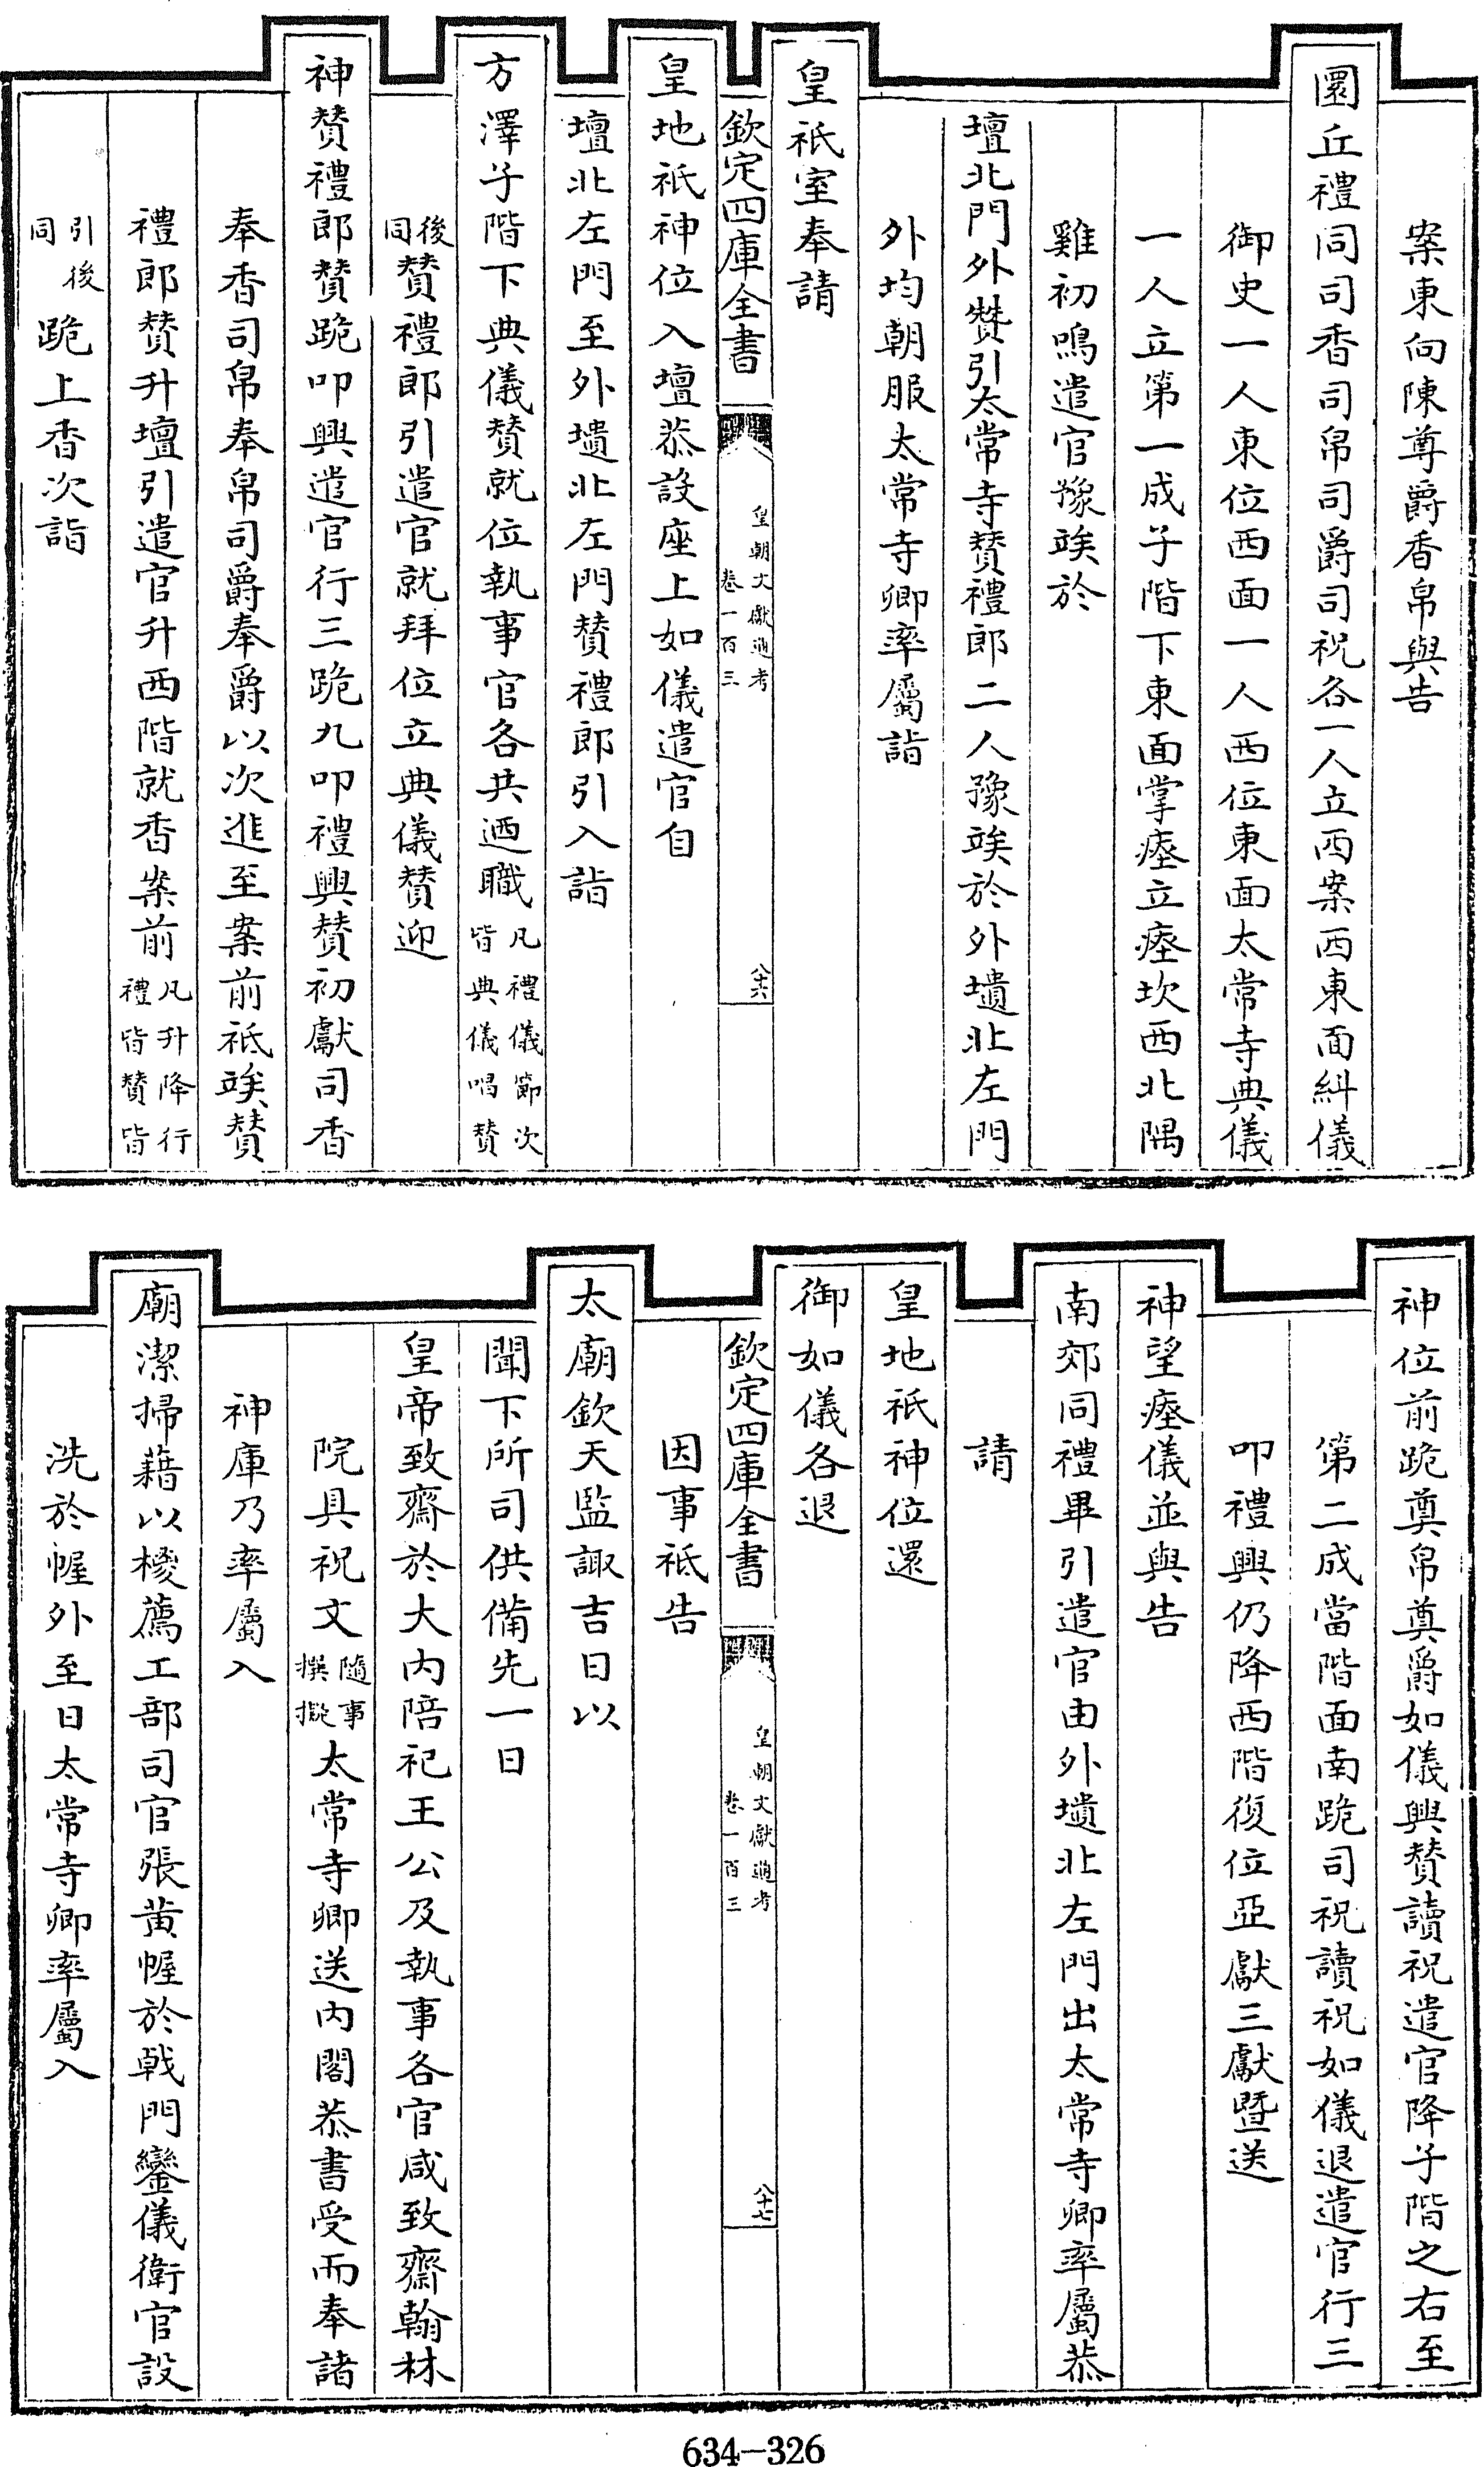 案東向陳尊爵香帛與告
圜丘禮同司香司帛司爵司祝各一人立西案西東面糾儀
御史一人東位西面一人西位東面太常寺典儀
一人立第一成子階下東面掌瘞立瘞坎西北隅
雞初鳴遣官豫竢於
壇北門外贊引太常寺贊禮郎二人豫竢於外壝北左門
外均朝服太常寺卿率屬詣
皇祇室奉請
欽定四庫全書 皇朝文獻通考 卷一百三 八十六
皇地祇神位入壇恭設座上如儀遣官自
壇北左門至外壝北左門贊禮郎引入詣
方澤子階下典儀贊就位執事官各共迺職凡禮儀節次皆典儀唱贊
後同贊禮郎引遣官就拜位立典儀贊迎
神贊禮郎贊跪叩興遣官行三跪九叩禮興贊初獻司香
奉香司帛奉帛司爵奉爵以次進至案前祗竢贊
禮郎贊升壇引遣官升西階就香案前凡升降行禮皆贊皆
引後同跪上香次詣
神位前跪奠帛奠爵如儀興贊讀祝遣官降子階之右至
第二成當階面南跪司祝讀祝如儀退遣官行三
叩禮興仍降西階復位亞獻三獻暨送
神望瘞儀並與告
南郊同禮畢引遣官由外壝北左門出太常寺卿率屬恭
請
皇地祇神位還
御如儀各退
欽定四庫全書 皇朝文獻通考 卷一百三 八十七
因事祗告
太廟欽天監諏吉日以
聞下所司供備先一日
皇帝致齋於大內陪祀王公及執事各官咸致齋翰林
院具祝文隨事撰擬太常寺卿送內閣恭書受而奉諸
神庫乃率屬入
廟潔掃藉以椶薦工部司官張黃幄於戟門鑾儀衛官設
洗於幄外至日太常寺卿率屬入
634-326